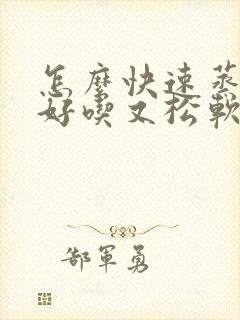 怎麼快速蒸
好喫又松軟
郜軍勇